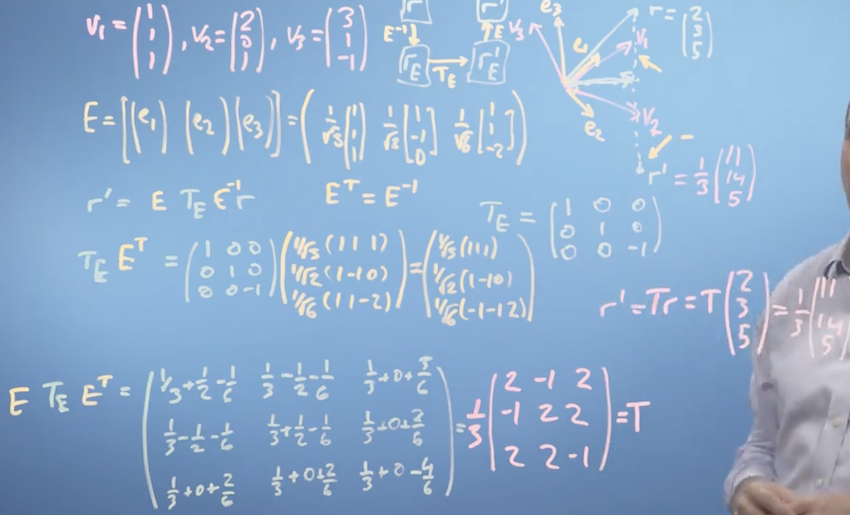 v₁ = (1 1 1), v₂ = (2 0 1), v₃ = (3 1 -1)
r r'
E⁻¹ ↓ ↑ E
r_E → r'_E
T_E
e₃ v₃ e₁ v₁ v₂ e₂
r = (2 3 5)
r' = 1/3 (11 14 5)
E = [(e₁) (e₂) (e₃)] = (1/√3 [1 1 1] 1/√2 [1 -1 0] 1/√6 [1 1 -2])
r' = E T_E E⁻¹ r
E^T = E⁻¹
T_E = (1 0 0
0 1 0
0 0 -1)
T_E E^T = (1 0 0
0 1 0
0 0 -1) (1/√3 (1 1 1)
1/√2 (1 -1 0)
1/√6 (1 1 -2)) = (1/√3 (1 1 1)
1/√2 (1 -1 0)
1/√6 (-1 -1 2))
r' = Tr = T (2 3 5) = 1/3 (11 14 5)
E T_E E^T = (1/3+1/2-1/6 1/3-1/2-1/6 1/3+0+2/6
1/3-1/2-1/6 1/3+1/2-1/6 1/3+0+2/6
1/3+0+2/6 1/3+0+2/6 1/3+0-4/6) = 1/3 (2 -1 2
-1 2 2
2 2 -1) = T